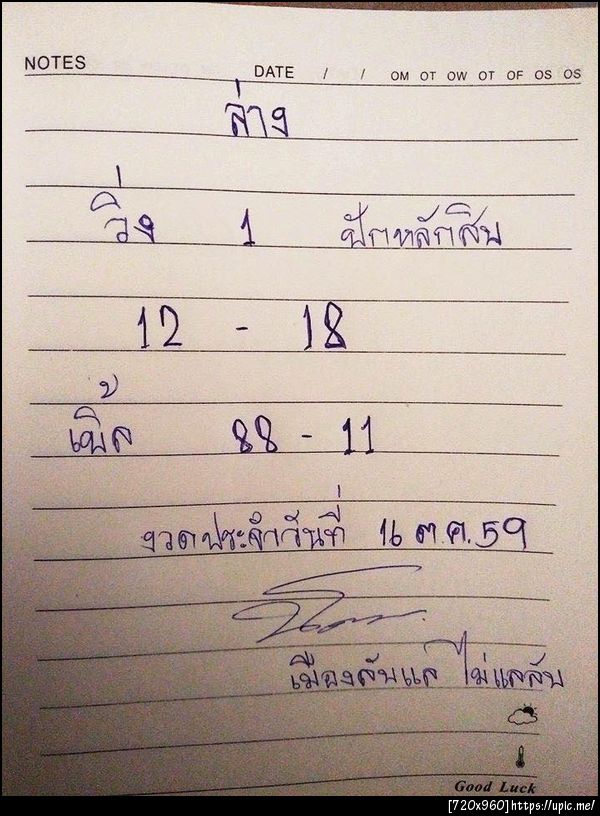 NOTES
DATE / / OM OT OW OT OF OS OS
ล่าง
วิ่ง 1 ปักหลักสิบ
12 - 18
เบิ้ล 88 - 11
งวดประจำวันที่ 16 ต.ค.59
เมืองลับแล ไม่แลลับ
Good Luck
[720x960]https://upic.me/